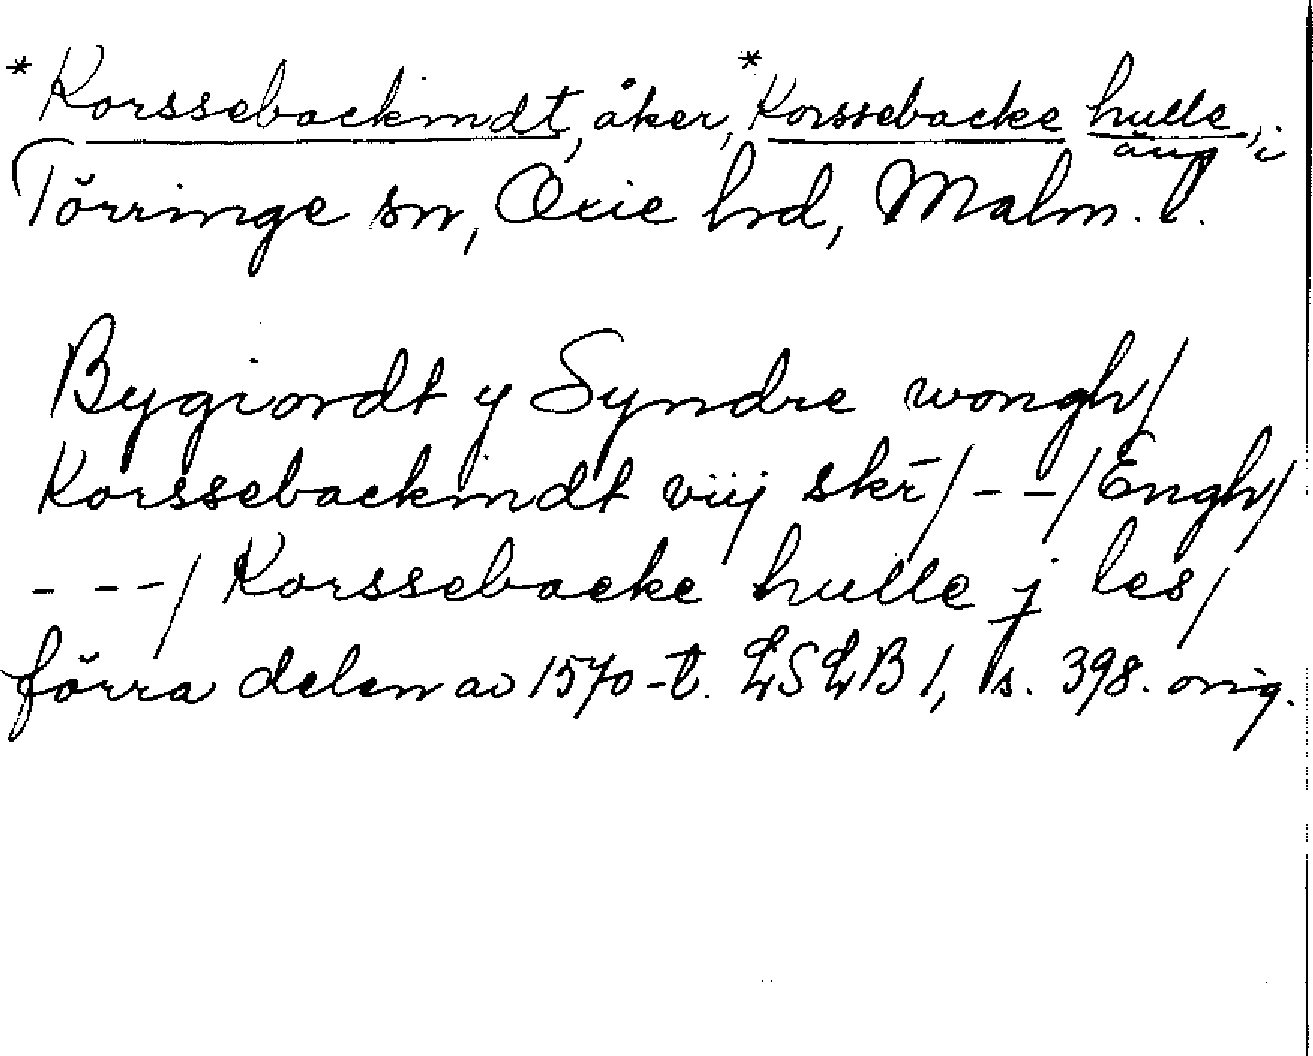 *Korssebackindt, åker, *Korssebacke hulle, äng, i
Törringe sn, Oxie hd, Malm. l.
Bygiordt y Syndre wongh/
Korssebackindt viij skr̄/ - -/ Engh/
- - -/ Korssebacke hulle j les/
förra delen av 1570-t. LSLB 1, s. 398. orig.